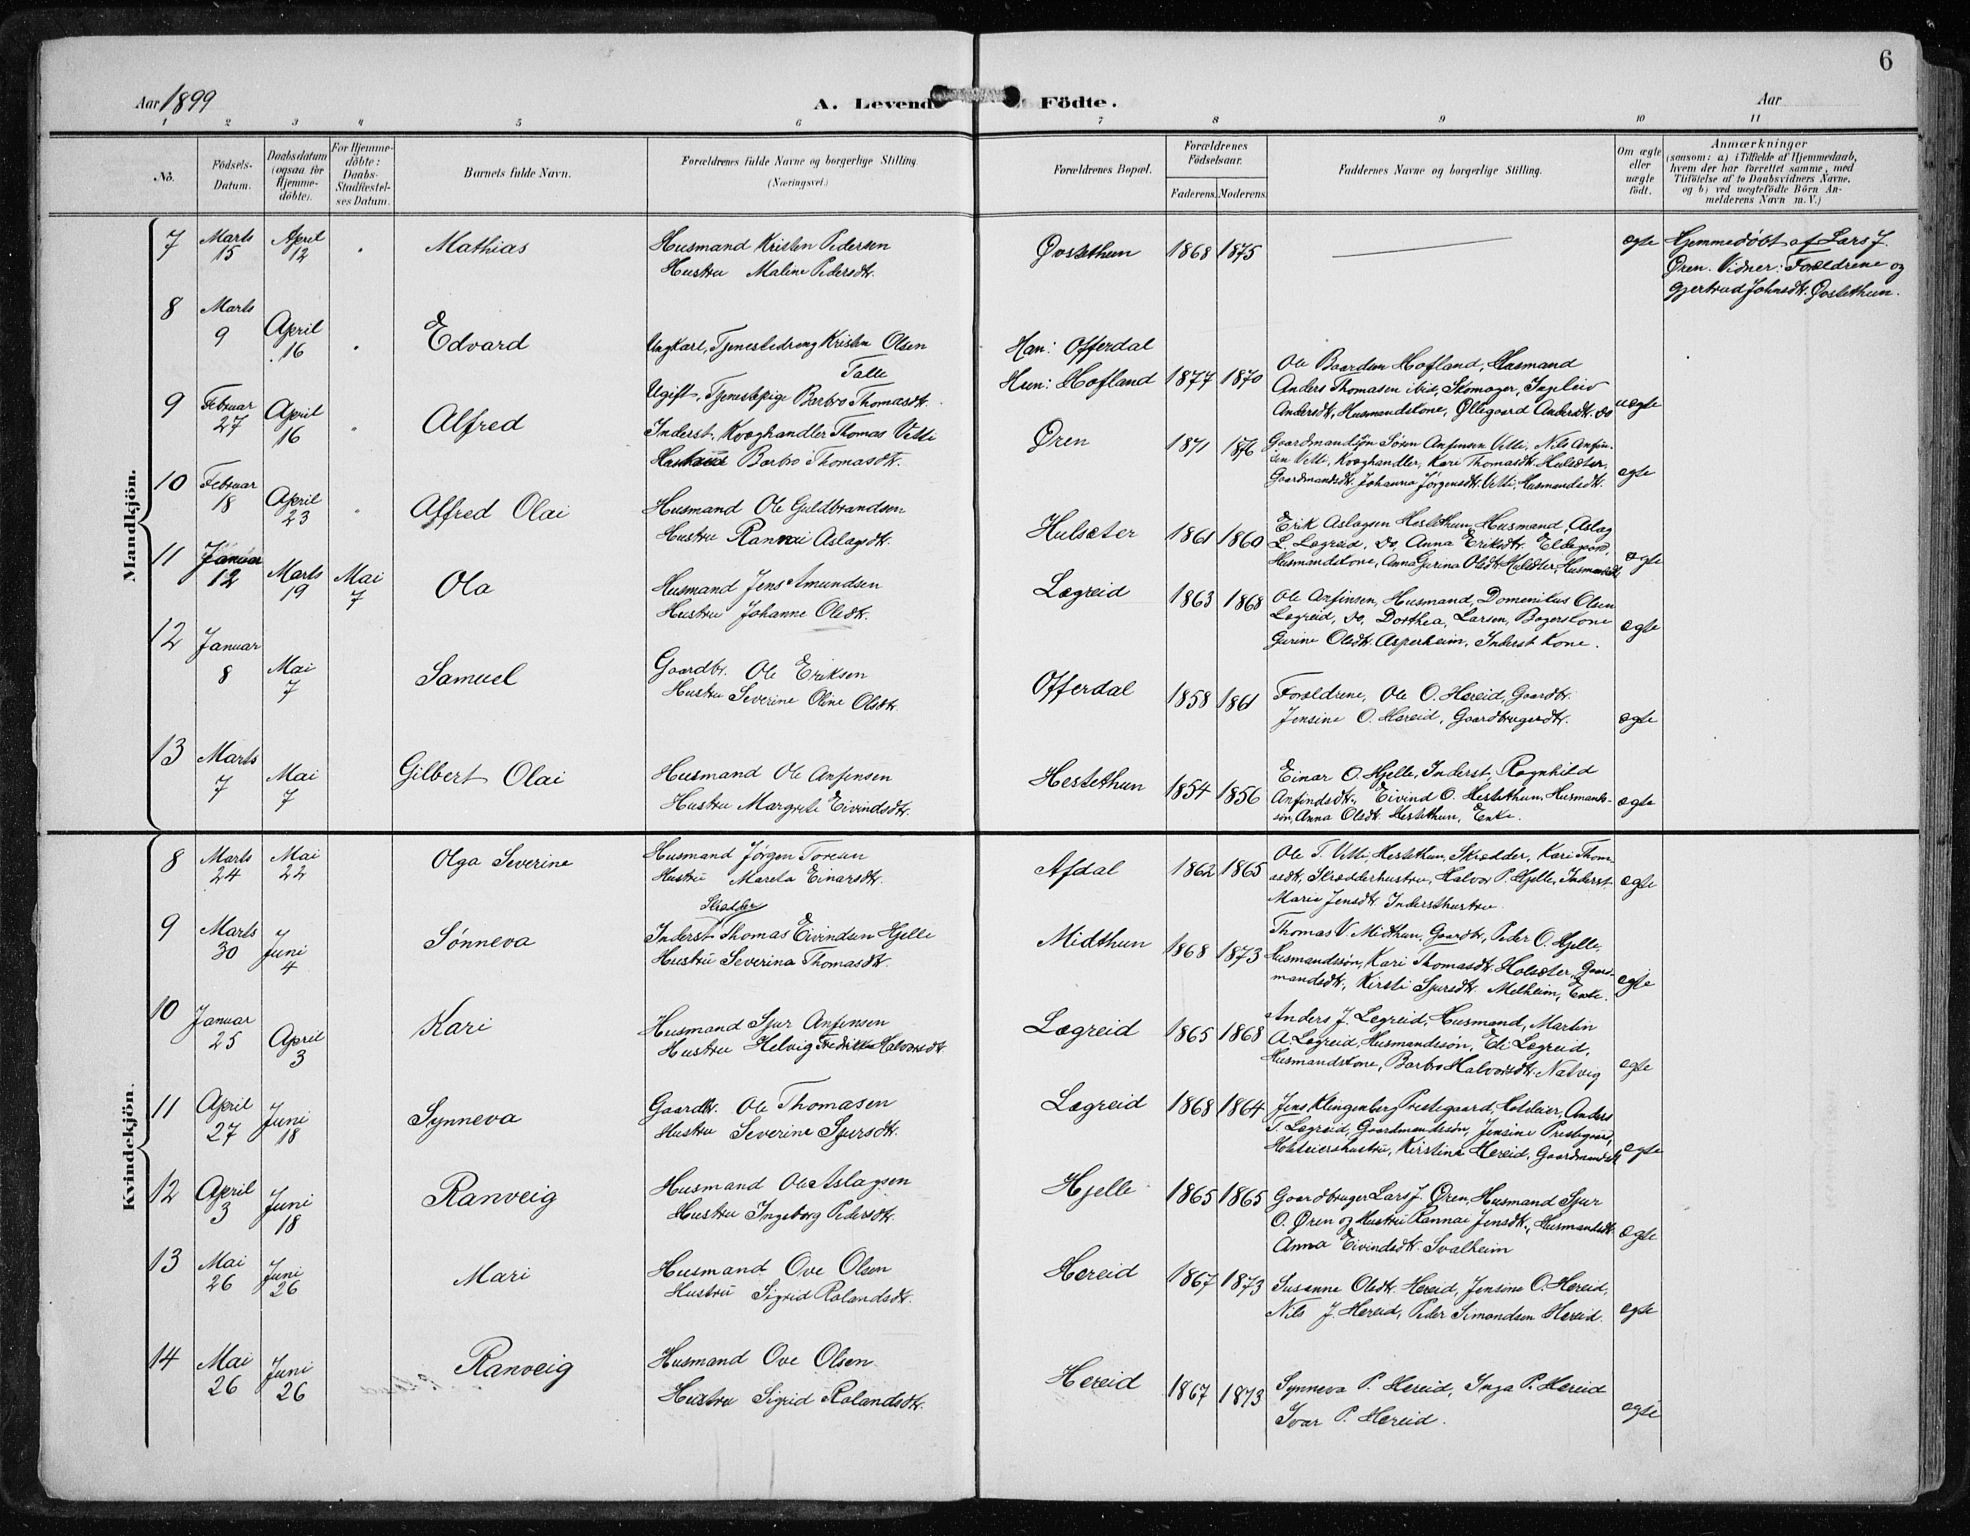 6
Aar 1899
A. Levende Födte.
Aar
1 2 3 4 5 6 7 8 9 10 11
No.
Födsels-
Datum.
Daabsdatum
(ogsaa för
Hjemme-
döbte).
For Hjemme-
döbte:
Daabs-
Stadfæstel-
ses Datum.
Barnets fulde Navn.
Forældrenes fulde Navne og borgerlige Stilling.
(Næringsvei.)
Forældrenes Bopæl.
Forældrenes
Födselsaar.
Faderens. Moderens.
Faddernes Navne og borgerlige Stilling.
Om ægte
eller
uægte
födt.
Anmærkninger
(saasom: a) i Tilfælde af Hjemmedaab,
hvem der har forrettet samme, med
Tilföielse af to Daabsvidners Navne,
og b) ved uægtefödte Börn An-
melderens Navn m. V.)
Mandkjön.
7 Marts 15 April 12 Mathias
Husmand Kristen Pedersen
Hustru Maline Pedersdtr.
Qvstethun 1868 1875 ægte
Hjemmedøbt af Lars J.
Øren. Vidner: Forældrene og
Gjertrud Johnsdtr. Qvstethun.
8 Marts 9 April 16 Edvard
Ungkarl, Tjenestedreng Kristen Olsen
Talle
Ugift, Tjenestepige Barbro Thomasdtr.
Han: Offerdal
Hun: Hofland 1877 1870
Ole Baardsen Hofland, Husmand
Anders Thomasen ibid, Skomager, Ingleiv
Andersdtr, Husmandskone, Øllegaard Andersdtr. do
uægte
9 Februar 27 April 16 Alfred
Inderst, Kvæghandler Thomas Vetti
Hustru Barbro Thomasdtr.
Øren 1871 1876
Gaardmandssøn Søren Anfinsen Vetti, Nils Anfin-
sen Vetti, Kvæghandler, Kari Thomasdtr. Hulsæter,
Gaardmandsdtr. Johanna Jørgensdtr. Vetti, Husmandsdtr.
ægte
10 Februar 18 April 23 Alfred Olai
Husmand Ole Guldbrandsen
Hustru Rannai Aslagsdtr.
Hulsæter 1861 1860
Erik Aslagsen Hestethun, Husmand, Aslag
L. Lægreid, do, Anna Eriksdtr. Eldegard,
Husmandskone, Anna Gurina Olsdtr. Hulsæter, Husmandsdtr
ægte
11 Januar 12 Marts 19 Mai 7 Ola
Husmand Jens Amundsen
Hustru Johanne Olsdtr.
Lægreid 1863 1868
Ole Anfinsen, Husmand, Domenikus Olsen
Lægreid, do, Dorthea Larsen, Bagerskone
Gurine Olsdtr. Asperheim, Inderst Kone.
ægte
12 Januar 8 Mai 7 Samuel
Gaardbr. Ole Eriksen
Hustru Severine Oline Olsdtr.
Offerdal 1858 1861
Forældrene, Ole O. Hereid, Gaardbr.
Jensine O. Hereid, Gaardbrugerdtr.
ægte
13 Marts 7 Mai 7 Gilbert Olai
Husmand Ole Anfinsen
Hustru Margrete Eivindsdtr.
Hestethun 1854 1856
Einar O. Hjelle, Inderst, Ragnhild
Anfindsdtr., Eivind O. Hestethun, Husmands-
søn, Anna Olsdtr. Hestethun, Enke.
ægte
Kvindekjön.
8 Marts 24 Mai 22 Olga Severine
Husmand Jørgen Toresen
Hustru Mareta Einarsdtr.
Afdal 1862 1865
Ole T. Vetti, Hestethun, Skrædder, Kari Thom-
asdtr, Skrædderhustru, Halvor P. Hjelle, Inderst
Marie Jensdtr.Indersthustru
ægte
9 Marts 30 Juni 4 Sønneva
Skrædder
Inderst Thomas Eivindsen Hjelle
Hustru Severina Thomasdtr.
Midthun 1868 1873
Thomas V. Midthun, Gaardbr, Peder O. Hjelle,
Husmandssøn, Kari Thomasdtr. Holsæter, Gaard-
mandsdtr, Kirsti Sjursdtr. Melheim, Enke.
ægte
10 Januar 25 April 3 Kari
Husmand Sjur Anfinsen
Hustru Helvig Fredrikke Halvorsdtr
Lægreid 1865 1868
Anders J. Lægreid, Husmand, Martin
A. Lægreid, Husmandssøn, Eli Lægreid,
Husmandskone, Barbro Halvorsdtr. Natvig
ægte
11 April 27 Juni 18 Synneva
Gaardbr. Ole Thomasen
Hustru Severine Sjursdtr.
Lægreid 1868 1864
Jens Klingenberg Prestegaard, Hoteleier, Anders
T. Lægreid, Gaardmandssøn, Jensine Prestegaard,
Hoteleierhustru, Kirstina Hereid, Gaardmandsdtr
ægte
12 April 3 Juni 18 Ranveig
Husmand Ole Aslagsen
Hustru Ingeborg Pedersdtr.
Hjelle 1865 1865
Gaardbruger Lars J. Øren, Husmand Sjur
O. Øren og Hustru Rannai Jensdtr., Husmandsdtr.
Anna Eivindsdtr. Svalheim
ægte
13 Mai 26 Juni 26 Mari
Husmand Ove Olsen
Hustru Sigrid Rolandsdtr.
Hereid 1867 1873
Susanne Olsdtr. Hereid, Jensine O. Hereid,
Nils J. Hereid, Peder Simondsen Hereid.
ægte
14 Mai 26 Juni 26 Ranveig
Husmand Ove Olsen
Hustru Sigrid Rolandsdtr.
Hereid 1867 1873
Synneva P. Hereid, Inga P. Hereid
Ivar P. Hereid.
ægte